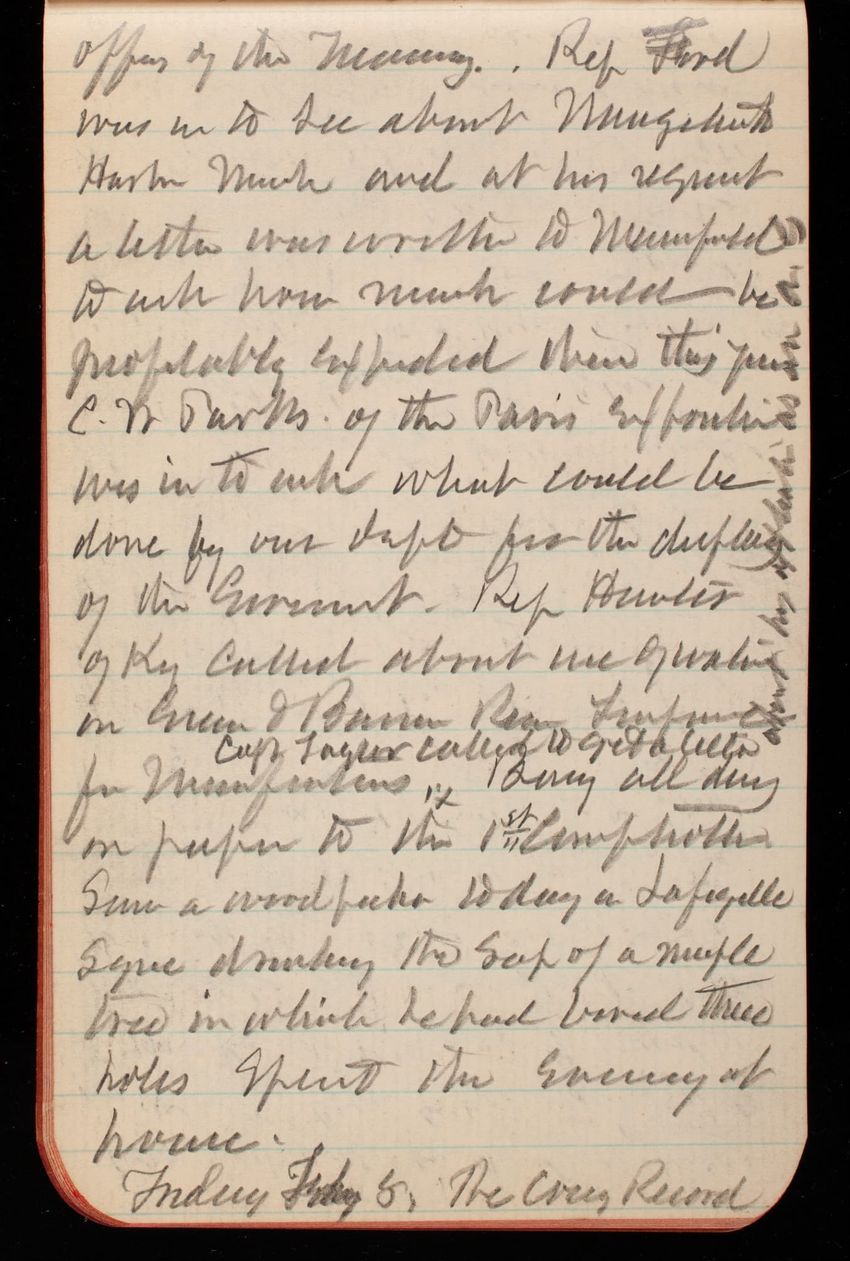 offices of the morning. Rep Ford
was in to see about
Harbor Mich and at his request
a letter was written to Mansfield
to ask how much could be
profitably expended there this year
C. W Parks. of the Paris Exposition
was in to ask what could be
done by our Dept for the display
of the Goverment. Rep Hunter
of Ky called about
on Green & Barren River Improvement
Capt Taylor called to get a letter
for Manifestoes. Busy all day
on paper to the 1st Comptroller
Saw a woodpecker to day in Lafayette
Sqre drinking the Sap of a maple
tree in which he had bored three
holes Spent the Evening at
home.
Friday Feby 5, The Cong Record
about his